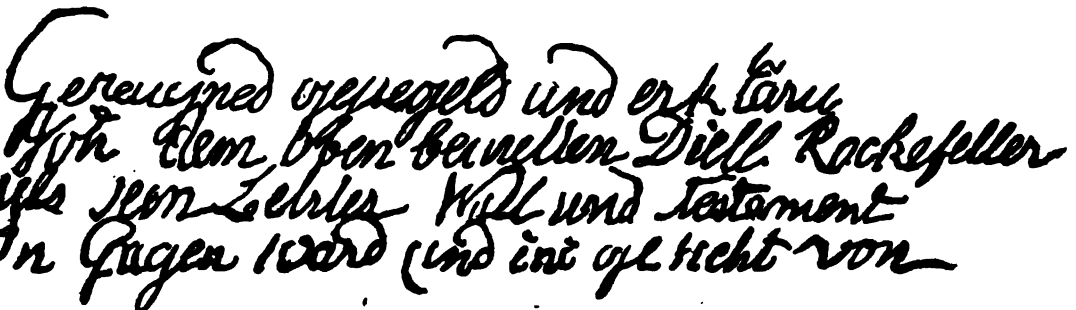 Gereugned geuegeld und erkläru
Von dem Oben bemellen Diell Rockefeller
Als sein Letzler Will und Testament
In Gagen ward und ini geticht von